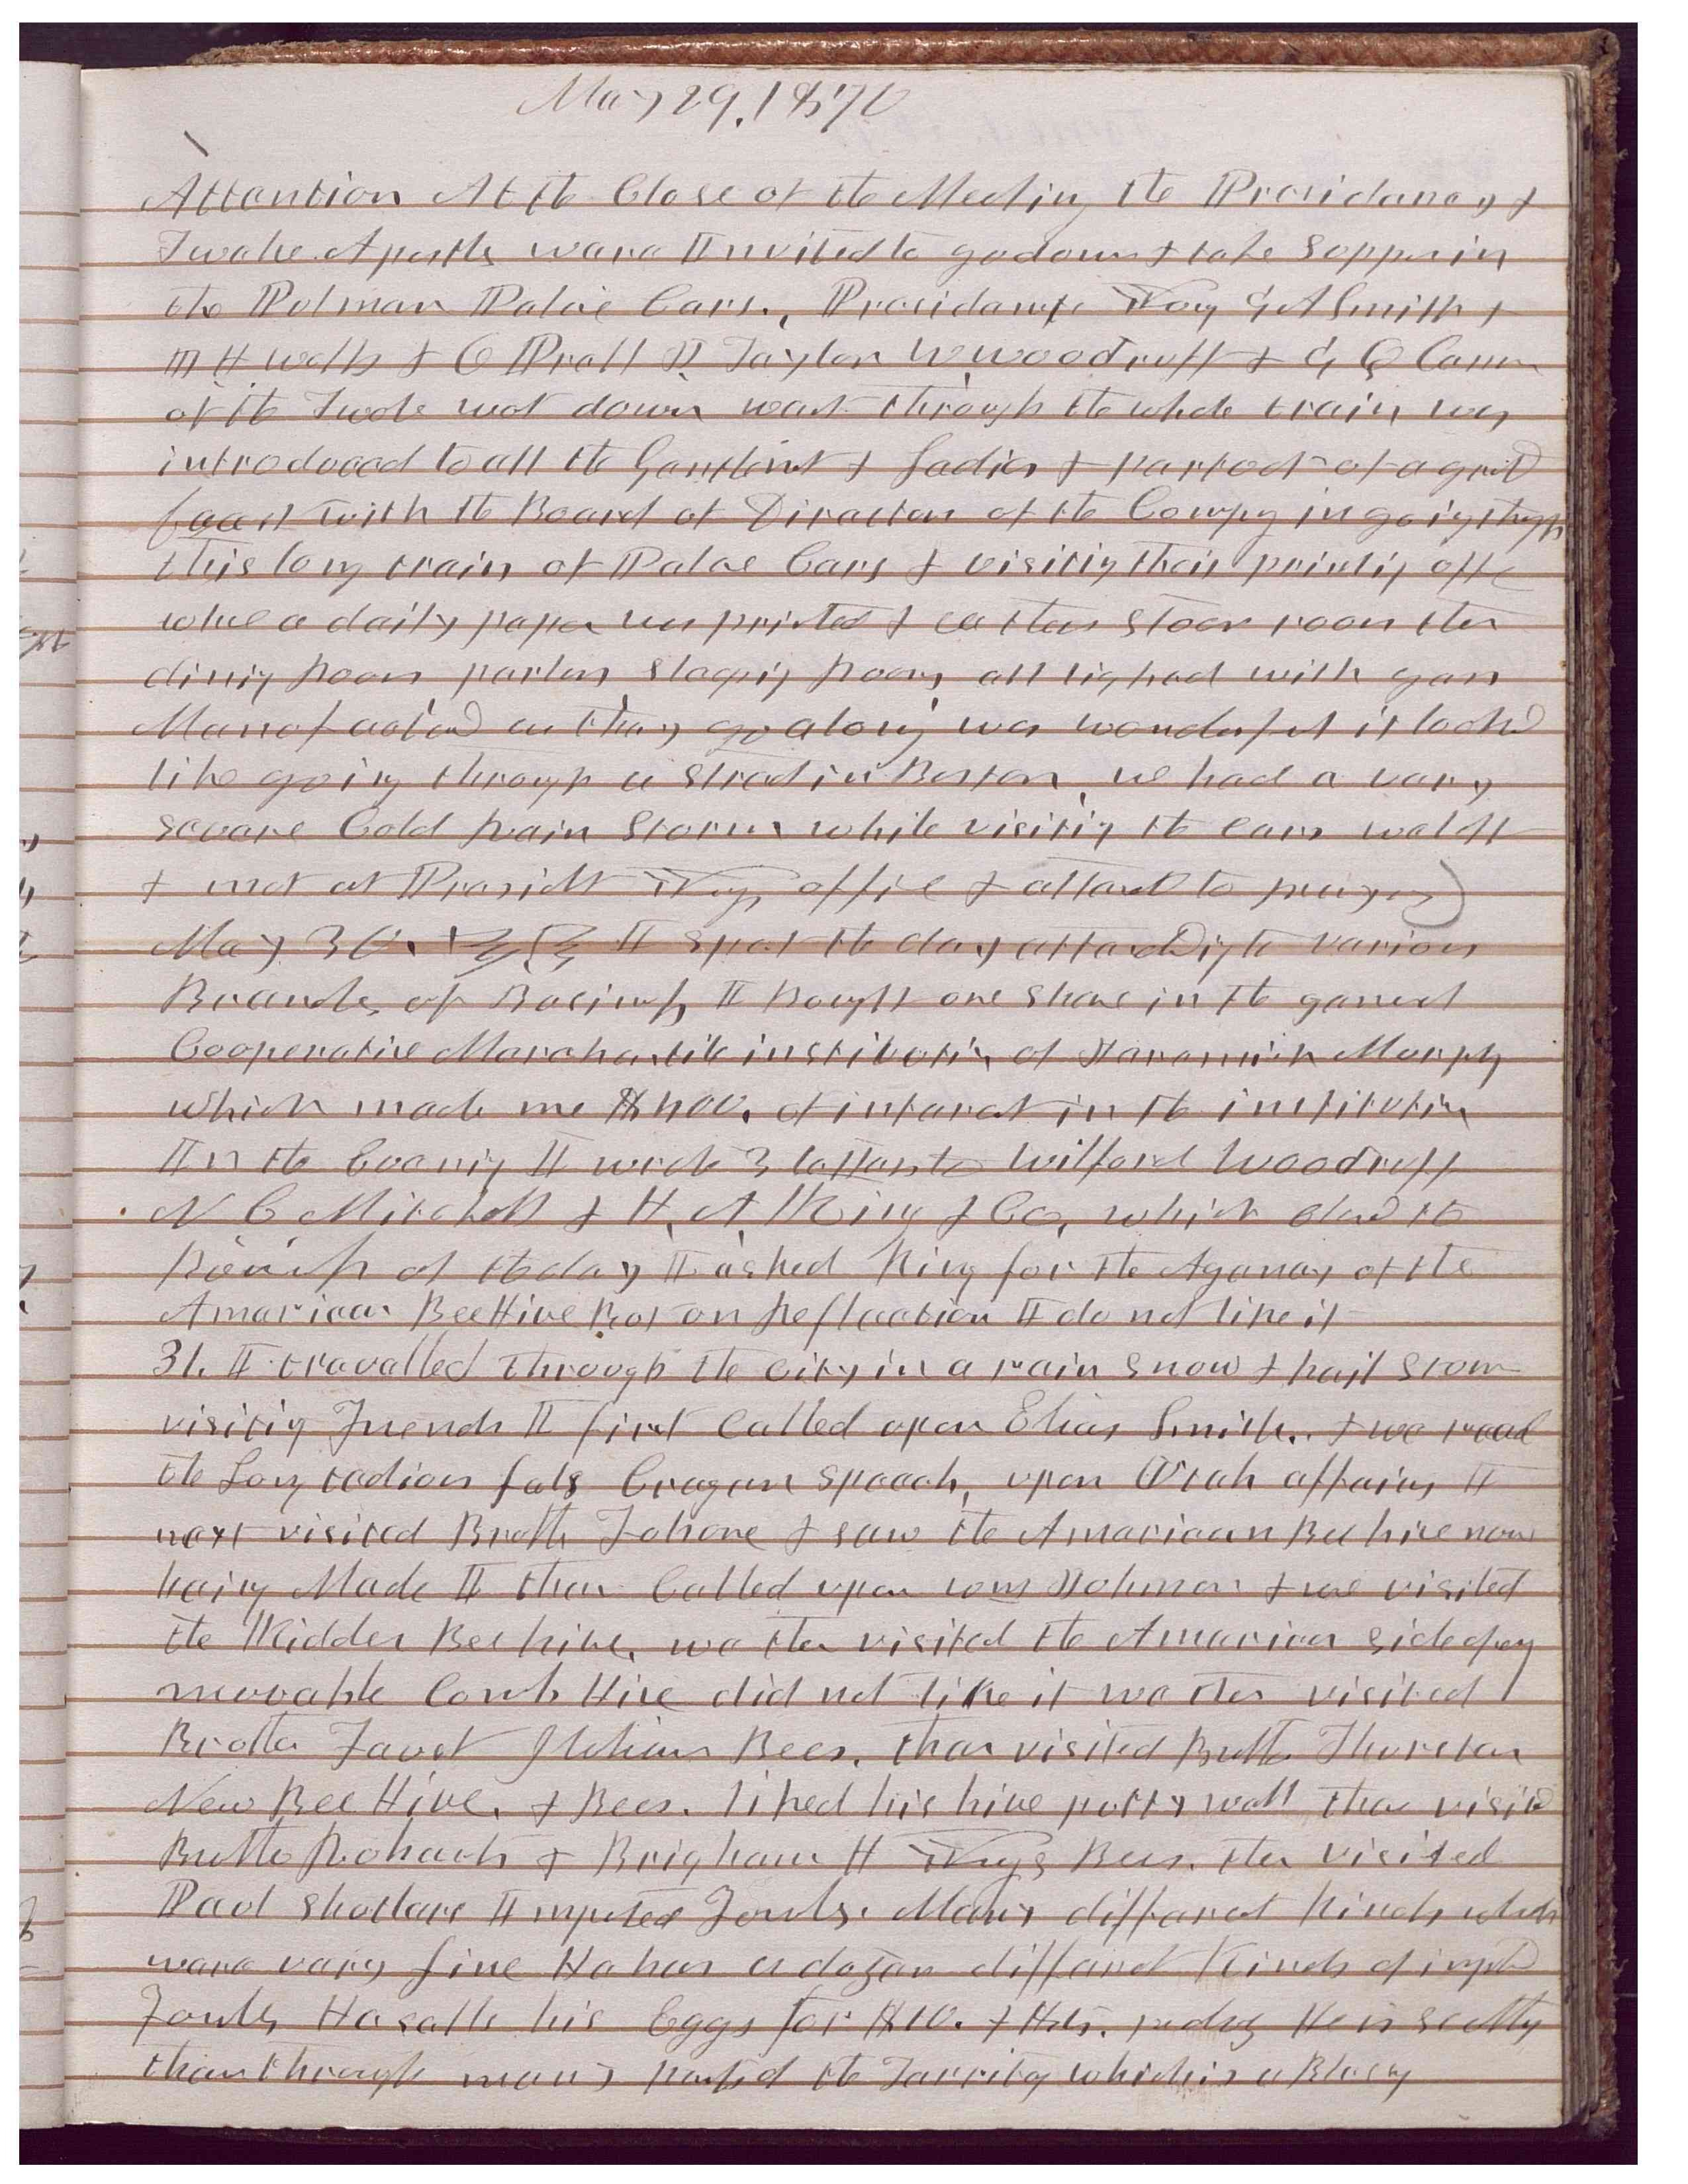 May 29, 1870
Attention At the Close of the Meeting the Presidency &
Twelve Apostles were Invited to go down & take Supper in
the Pulman Palace Cars., Presidents Young G A Smith &
D H Wells & O Pratt J Taylor W Woodruff & G Q Cann
of the Twelve went down went through the whole train was
introduced to all the Gentlemen & Ladies & partook of a great
feast with the Board of Directors of the Compny in going through
this long train of Palace Cars & visiting their printing office
whare a daily paper was printed & eat their Stoor room thr
dining Room parlors Sleeping Rooms all lighed with gass
Manufactured as they go along was wonderful it lookd
like going through a Street in Boston, we had a very
Severe Cold Rain Storm while visiting the cars
& met at Presidt Youngs office & attend to prayers
May 30, I spent the day attending to various
Branches of Business I bought one Share in the general
Cooperative Merchantile institution of Jaremiah Murphy
which made me $400. of interest in the institution
In the Evening I wrote 3 letters to Wilford Woodruff
N C Mitchell & H. A. King & Co, which closed the
Buisness of the day I asked King for the Agency of the
American BeeHive But on Reflection I do not like it
31. I travelled through the city in a rain Snow & hail Storm
visiting Friends I first Called upon Elias Smith. & we read
the Long tedious fals Cragan Speech, upon Utah affairs I
next visited Brother Johone & saw the American Bee hive now
being Made I then Called upon wm Johnson & we visited
the Kidder Bee hive. we then visited the American side open
movable Comb Hive did not like it we then visited
Brother Itilian Bees. then visited Brother Thursten
New Bee Hive, & Bees. liked his hive putty well then visited
Brother Rohach & Brigham H Youngs Bees. then visited
Paul Shettlare Imputed Fouls. Many different kinds which
were very fine He has a dozen different kinds of imptd
Fouls He sells his Eggs for $10. & He is selling
them through many parts of the Territory which is a Blessing